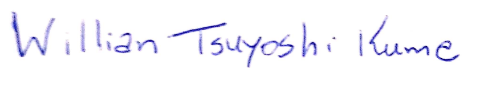 Willian Tsuyoshi Kume